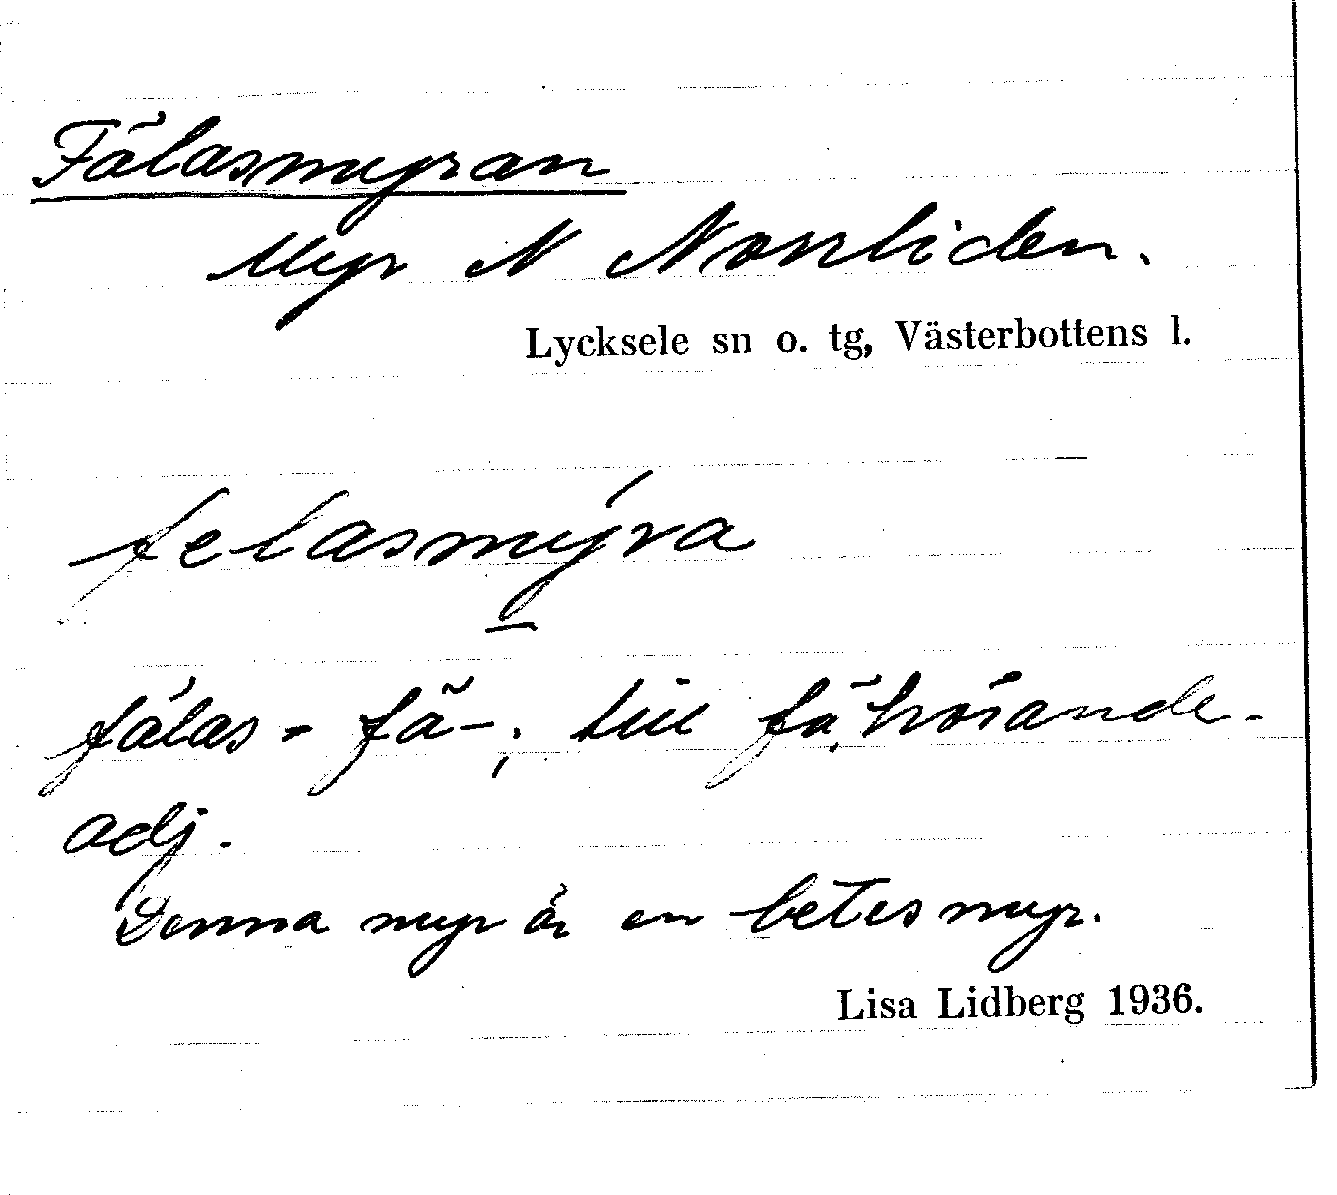 Fälasmyran
Myr N Norrliden.
Lycksele sn o. tg, Västerbottens l.
felasmýra
fälas- fä-; till fä, hörande-
adj.
Denna myr är en betesmyr.
Lisa Lidberg 1936.